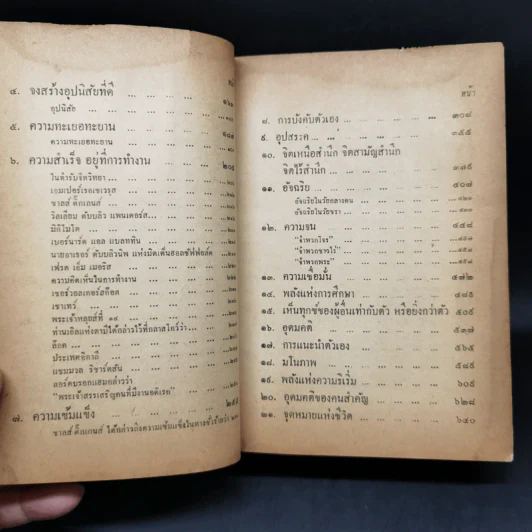 หน้า
๔. จงสร้างอุปนิสัยที่ดี ... ... ... ๑๖๖
อุปนิสัย ... ... ... ... ...
๕. ความทะเยอทะยาน ... ... ... ๑๘๗
ความทะเยอทะยาน ... ... ... ...
๖. ความสำเร็จ อยู่ที่การทำงาน ... ... ๒๐๔
ในตำรับจิตวิทยา ... ... ... ...
เอมเปอร์เรอเซเวรุส ... ... ... ...
ชาลส์ ดิ๊กเกนส์ ... ... ... ...
วิลเลียม ดับบลิว แพนเดอร์ส... ... ...
มิกิโมโต ... ... ... ...
เบอร์นาร์ด แอล แบลททิน ... ...
นายอาเธอร์ ดับบลิวนิพ แห่งมิดเด็นฮอลซัฟฟอล์ค
เฟรด เอ็ม เมอริส ... ... ...
ความคิดเห็นในการทำงาน ... ...
เซอร์วอลเตอร์สก๊อต ... ... ...
เชาเทร์ ... ... ...
พระเจ้าหลุยส์ที่ ๑๔ ... ... ...
ล๊อค ... ... ... ...
ประเทศอิตาลี ... ... ...
แชมมวล ริชาร์ดสัน ... ... ...
ลอร์ดบรอกแฮมกล่าวว่า ... ...
"พระเจ้าสรรเสริญคนที่มีงานอดิเรก" ...
๗. ความเข้มแข็ง ... ... ... ๒๘๕
หน้า
๘. การบังคับตัวเอง ... ... ... ๓๐๘
๙. อุปสรรค ... ... ... ... ๓๕๕
๑๐. จิตเหนือสำนึก จิตสามัญสำนึก
จิตไร้สำนึก ... ... ... ... ๓๗๕
๑๑. อัจฉริย ... ... ... ... ๔๐๗
อัจฉริยในวัยกลางคน ... ... ...
อัจฉริยในวัยชรา ... ... ...
๑๒. ความจน ... ... ... ... ๔๔๘
"จำพวกโจร" ... ... ...
"จำพวกชาวไร่" ... ... ...
"จำพวกพระ" ... ... ...
๑๓. ความเชื่อมั่น ... ... ... ๔๗๒
๑๔. พลังแห่งการศึกษา ... ... ... ๔๘๖
๑๕. เห็นทุกข์ของผู้อื่นเท่ากับตัว หรือยิ่งกว่าตัว ๕๐๖
๑๖. อุดมคติ ... ... ... ... ๕๓๗
๑๗. การแนะนำตัวเอง ... ... ... ๕๖๕
๑๘. มโนภาพ ... ... ... ... ๕๘๕
๑๙. พลังแห่งความริเริ่ม ... ... ... ๖๐๕
๒๐. อุดมคติของคนสำคัญ ... ... ... ๖๒๘
๒๑. จุดหมายแห่งชีวิต ... ... ... ๖๔๐